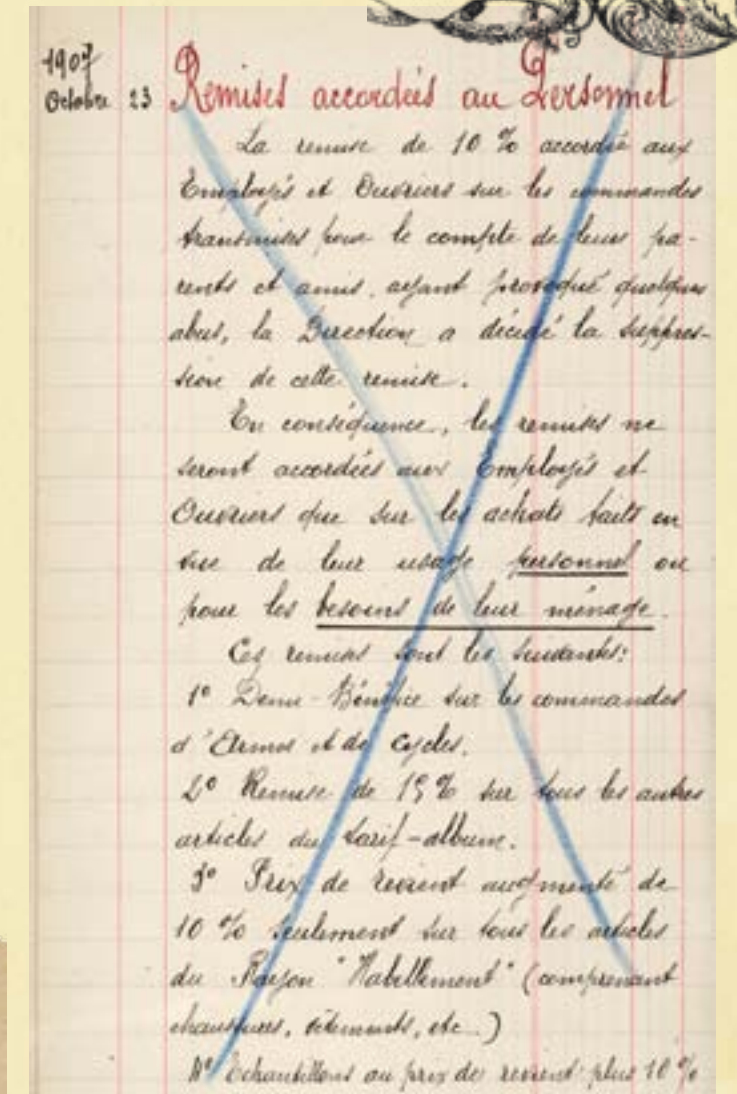 1907
Octobre 23 Remises accordées au Personnel
La remise de 10 % accordée aux
Employés et Ouvriers sur les commandes
transmises pour le compte de leurs pa-
rents et amis, ayant provoqué quelques
abus, la Direction a décidé la suppres-
sion de cette remise.
En conséquence, les remises ne
seront accordées aux Employés et
Ouvriers que sur les achats faits en
vue de leur usage personnel ou
pour les besoins de leur ménage.
Ces remises sont les suivantes:
1º Demi-Bénéfice sur les commandes
d'Armes et de Cycles.
2º Remise de 15 % sur tous les autres
articles du tarif-album.
3º Prix de revient augmenté de
10 % seulement sur tous les articles
du Rayon "Habillement" (comprenant
chaussures, vêtements, etc...)
4º Echantillons au prix de revient plus 10 %